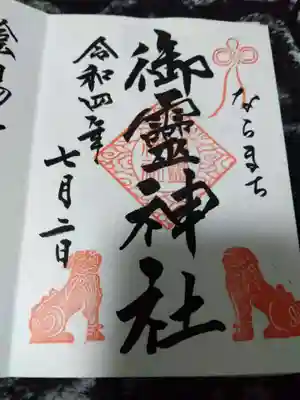 ならまち
御靈神社
令和四年
七月二日